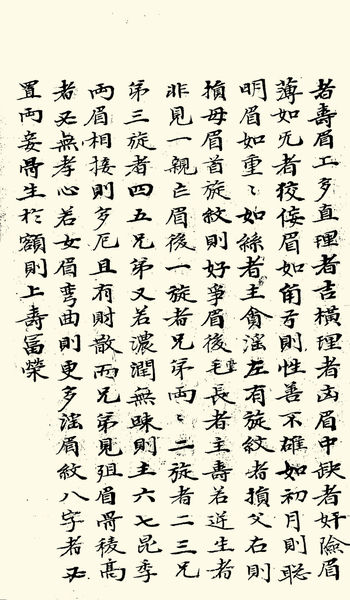 者壽眉上多直理者吉橫理者凶眉中缺者奸險眉
薄如無者狡佞眉如角弓則性善不雄如初月則聡
明眉如重〻如絲者主貪滛左有旋紋者損父右則
損母眉首旋紋則好爭眉後毛長者主壽若逆生者
非見一親亡眉後一旋者兄弟兩〻二旋者二三兄
第三旋者四五兄弟又若濃潤無踈則主六七昆季
兩眉相接則多厄且有財散而兄弟見殂眉骨稜高
者又無孝心若女眉彎曲則更多滛眉紋八字者又
置兩妾骨生於額則上壽冨榮